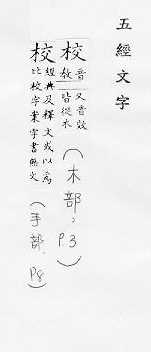 五經文字
校 音教 又音效 皆從木 (木部, P.3)
校 經典及釋文或以為比校字案字書無文 (手部, P8)